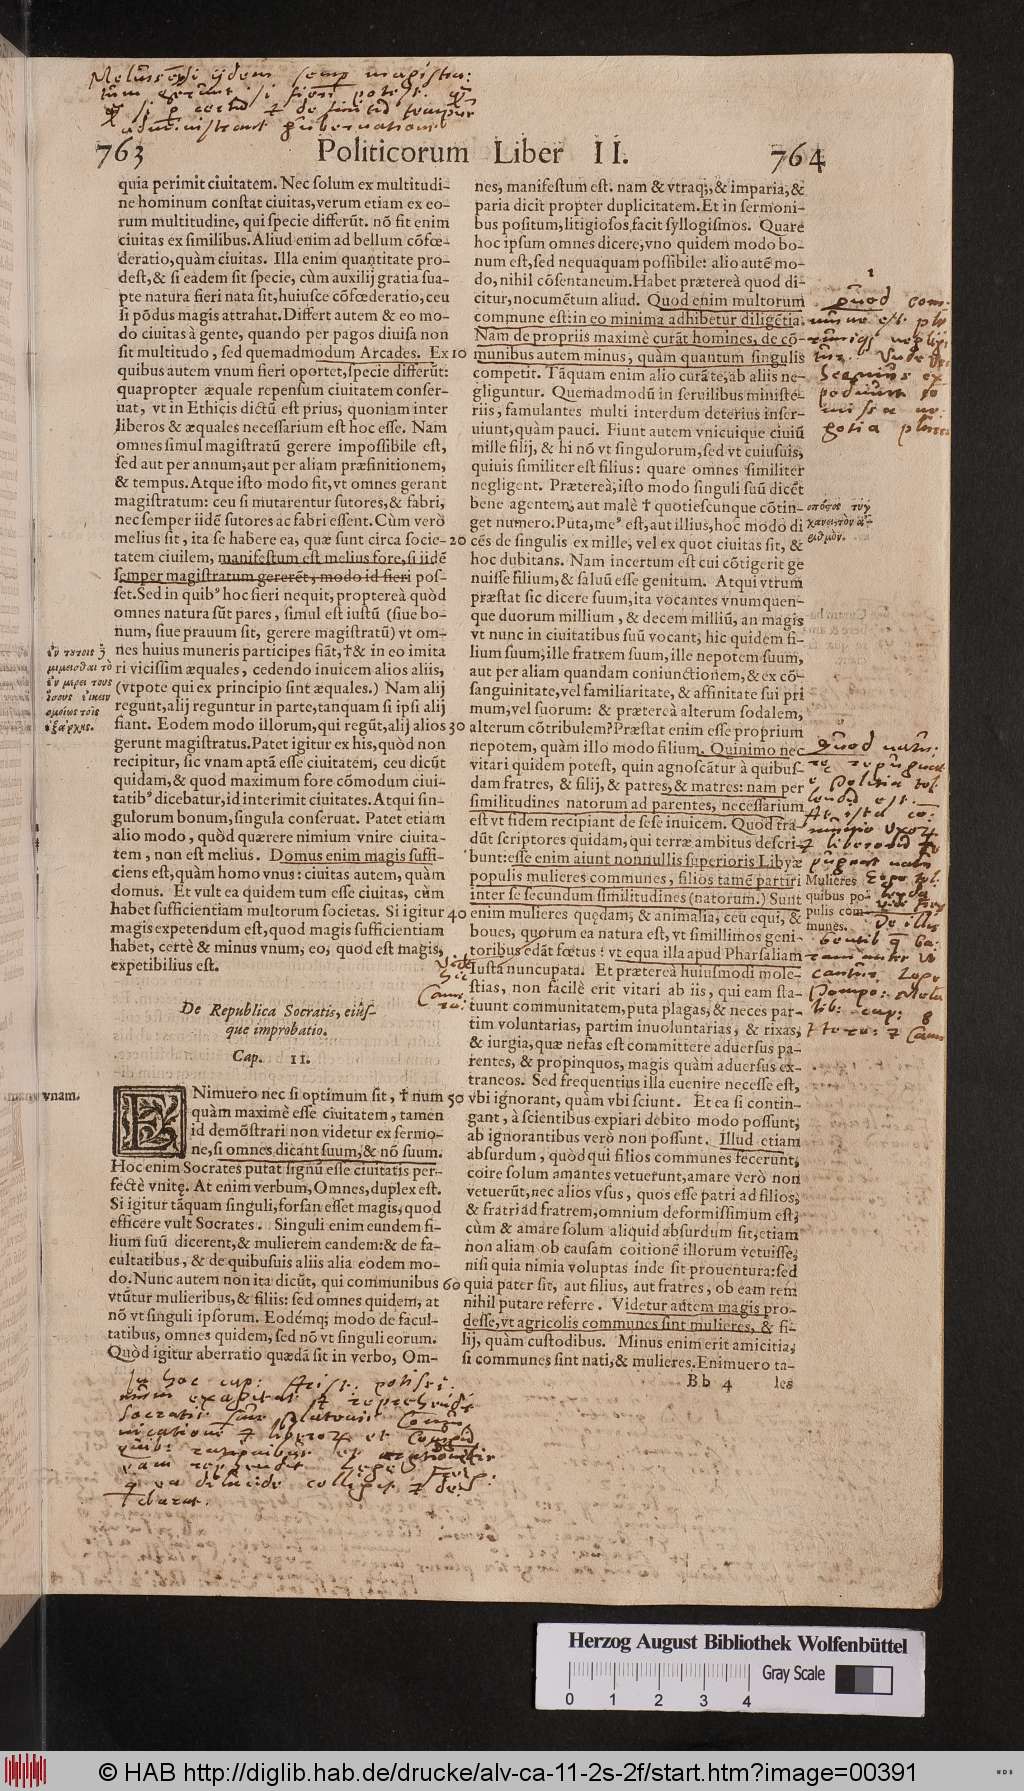 763 Politicorum Liber II. 764
quia perimit ciuitatem. Nec ſolum ex multitudi-
ne hominum conſtat ciuitas, verum etiam ex eo-
rum multitudine, qui ſpecie differūt. nō fit enim
ciuitas ex ſimilibus. Aliud enim ad bellum cōfœ-
deratio, quàm ciuitas. Illa enim quantitate pro-
deſt, & ſi eadem ſit ſpecie, cùm auxilij gratia ſua-
pte natura fieri nata ſit, huiuſce cōfœderatio, ceu
ſi pōdus magis attrahat. Differt autem & eo mo-
do ciuitas à gente, quando per pagos diuiſa non
ſit multitudo, ſed quemadmodum Arcades. Ex 10
quibus autem vnum fieri oportet, ſpecie differūt:
quapropter æquale repenſum ciuitatem conſer-
uat, vt in Ethicis dictū eſt prius, quoniam inter
liberos & æquales neceſſarium eſt hoc eſſe. Nam
omnes ſimul magiſtratū gerere impoſſibile eſt,
ſed aut per annum, aut per aliam præfinitionem,
& tempus. Atque iſto modo fit, vt omnes gerant
magiſtratum: ceu ſi mutarentur ſutores, & fabri,
nec ſemper iidē ſutores ac fabri eſſent. Cùm verò
melius ſit, ita ſe habere ea, quæ ſunt circa ſocie- 20
tatem ciuilem, manifeſtum eſt melius fore, ſi iidē
ſemper magiſtratum gererēt, modo id fieri poſ-
ſet. Sed in quibꝰ hoc fieri nequit, proptereà quòd
omnes natura ſūt pares, ſimul eſt iuſtū (ſiue bo-
num, ſiue prauum ſit, gerere magiſtratū) vt om-
nes huius muneris participes fiāt, † & in eo imita
ri viciſſim æquales, cedendo inuicem alios aliis,
(vtpote qui ex principio ſint æquales.) Nam alij
regunt, alij reguntur in parte, tanquam ſi ipſi alij
fiant. Eodem modo illorum, qui regūt, alij alios 30
gerunt magiſtratus. Patet igitur ex his, quòd non
recipitur, ſic vnam aptā eſſe ciuitatem, ceu dicūt
quidam, & quod maximum fore cōmodum ciui-
tatibꝰ dicebatur, id interimit ciuitates. Atqui ſin-
gulorum bonum, ſingula conſeruat. Patet etiam
alio modo, quòd quærere nimium vnire ciuita-
tem, non eſt melius. Domus enim magis ſuffi-
ciens eſt, quàm homo vnus: ciuitas autem, quàm
domus. Et vult ea quidem tum eſſe ciuitas, cùm
habet ſufficientiam multorum ſocietas. Si igitur 40
magis expetendum eſt, quod magis ſufficientiam
habet, certè & minus vnum, eo, quod eſt magis,
expetibilius eſt.
De Republica Socratis, eiúſ-
que improbatio.
Cap. II.
vnam.
ENimuero nec ſi optimum ſit, † num 50
quàm maximè eſſe ciuitatem, tamen
id demōſtrari non videtur ex ſermo-
ne, ſi omnes dicant ſuum, & nō ſuum.
Hoc enim Socrates putat ſignū eſſe ciuitatis per-
fectè vnitę. At enim verbum, Omnes, duplex eſt.
Si igitur tāquam ſinguli, forſan eſſet magis, quod
efficere vult Socrates. Singuli enim eundem fi-
lium ſuū dicerent, & mulierem eandem: & de fa-
cultatibus, & de quibuſuis aliis alia eodem mo-
do. Nunc autem non ita dicūt, qui communibus 60
vtūtur mulieribus, & filiis: ſed omnes quidem, at
nō vt ſinguli ipſorum. Eodémq; modo de facul-
tatibus, omnes quidem, ſed nō vt ſinguli eorum.
Quòd igitur aberratio quædā ſit in verbo, Om-
nes, manifeſtum eſt. nam & vtraq;, & imparia, &
paria dicit propter duplicitatem. Et in ſermoni-
bus poſitum, litigioſos facit ſyllogiſmos. Quare
hoc ipſum omnes dicere, vno quidem modo bo-
num eſt, ſed nequaquam poſſibile: alio autē mo-
do, nihil cōſentaneum. Habet prætereà quod di-
citur, nocumētum aliud. Quod enim multorum
commune eſt: in eo minima adhibetur diligētia.
Nam de propriis maximè curāt homines, de cō-
munibus autem minus, quàm quantum ſingulis
competit. Tāquam enim alio curāte, ab aliis ne-
gliguntur. Quemadmodū in ſeruilibus miniſte-
riis, famulantes multi interdum deterius inſer-
uiunt, quàm pauci. Fiunt autem vnicuique ciuiū
mille filij, & hi nō vt ſingulorum, ſed vt cuiuſuis,
quiuis ſimiliter eſt filius: quare omnes ſimiliter
negligent. Prætereà, iſto modo ſinguli ſuū dicēt
bene agentem, aut malè † quotieſcunque cōtin-
get numero. Puta, meꝰ eſt, aut illius, hoc modo di
cēs de ſingulis ex mille, vel ex quot ciuitas ſit, &
hoc dubitans. Nam incertum eſt cui cōtigerit ge
nuiſſe filium, & ſaluū eſſe genitum. Atqui vtrum
præſtat ſic dicere ſuum, ita vocantes vnumquen-
que duorum millium, & decem milliū, an magis
vt nunc in ciuitatibus ſuū vocant; hic quidem fi-
lium ſuum, ille fratrem ſuum, ille nepotem ſuum,
aut per aliam quandam coniunctionem, & ex cō-
ſanguinitate, vel familiaritate, & affinitate ſui pri
mum, vel ſuorum: & prætereà alterum ſodalem,
alterum cōtribulem? Præſtat enim eſſe proprium
nepotem, quàm illo modo filium. Quinimo nec
vitari quidem poteſt, quin agnoſcātur à quibuſ-
dam fratres, & filij, & patres, & matres: nam per
ſimilitudines natorum ad parentes, neceſſarium
eſt vt fidem recipiant de ſeſe inuicem. Quod tra-
dūt ſcriptores quidam, qui terræ ambitus deſcri-
bunt: eſſe enim aiunt nonnullis ſuperioris Libyæ
populis mulieres communes, filios tamē partiri
inter ſe ſecundum ſimilitudines (natorum.) Sunt
enim mulieres quędam, & animalia, ceu equi, &
boues, quorum ea natura eſt, vt ſimillimos geni-
toribus edāt fœtus: vt equa illa apud Pharſaliam
Iuſta nuncupata. Et prætereà huiuſmodi mole-
ſtias, non facilè erit vitari ab iis, qui eam ſta-
tuunt communitatem, puta plagas, & neces par-
tim voluntarias, partim inuoluntarias, & rixas,
& iurgia, quæ nefas eſt committere aduerſus pa-
rentes, & propinquos, magis quàm aduerſus ex-
traneos. Sed frequentius illa euenire neceſſe eſt,
vbi ignorant, quàm vbi ſciunt. Et ea ſi contin-
gant, à ſcientibus expiari debito modo poſſunt,
ab ignorantibus verò non poſſunt. Illud etiam
abſurdum, quòd qui filios communes fecerunt,
coire ſolum amantes vetuerunt, amare verò non
vetuerūt, nec alios vſus, quos eſſe patri ad filios,
& fratri ad fratrem, omnium deformiſſimum eſt;
cùm & amare ſolum aliquid abſurdum ſit, etiam
non aliam ob cauſam coitionē illorum vetuiſſe,
niſi quia nimia voluptas inde ſit prouentura: ſed
quia pater ſit, aut filius, aut fratres, ob eam rem
nihil putare referre. Videtur autem magis pro-
deſſe, vt agricolis communes ſint mulieres, & fi-
lij, quàm cuſtodibus. Minus enim erit amicitia,
ſi communes ſint nati, & mulieres. Enimuero ta-
Bb 4 les
Mulieres
quibus po-
pulis com-
munes.
Herzog August Bibliothek Wolfenbüttel
Gray Scale
0 1 2 3 4
© HAB http://diglib.hab.de/drucke/alv-ca-11-2s-2f/start.htm?image=00391